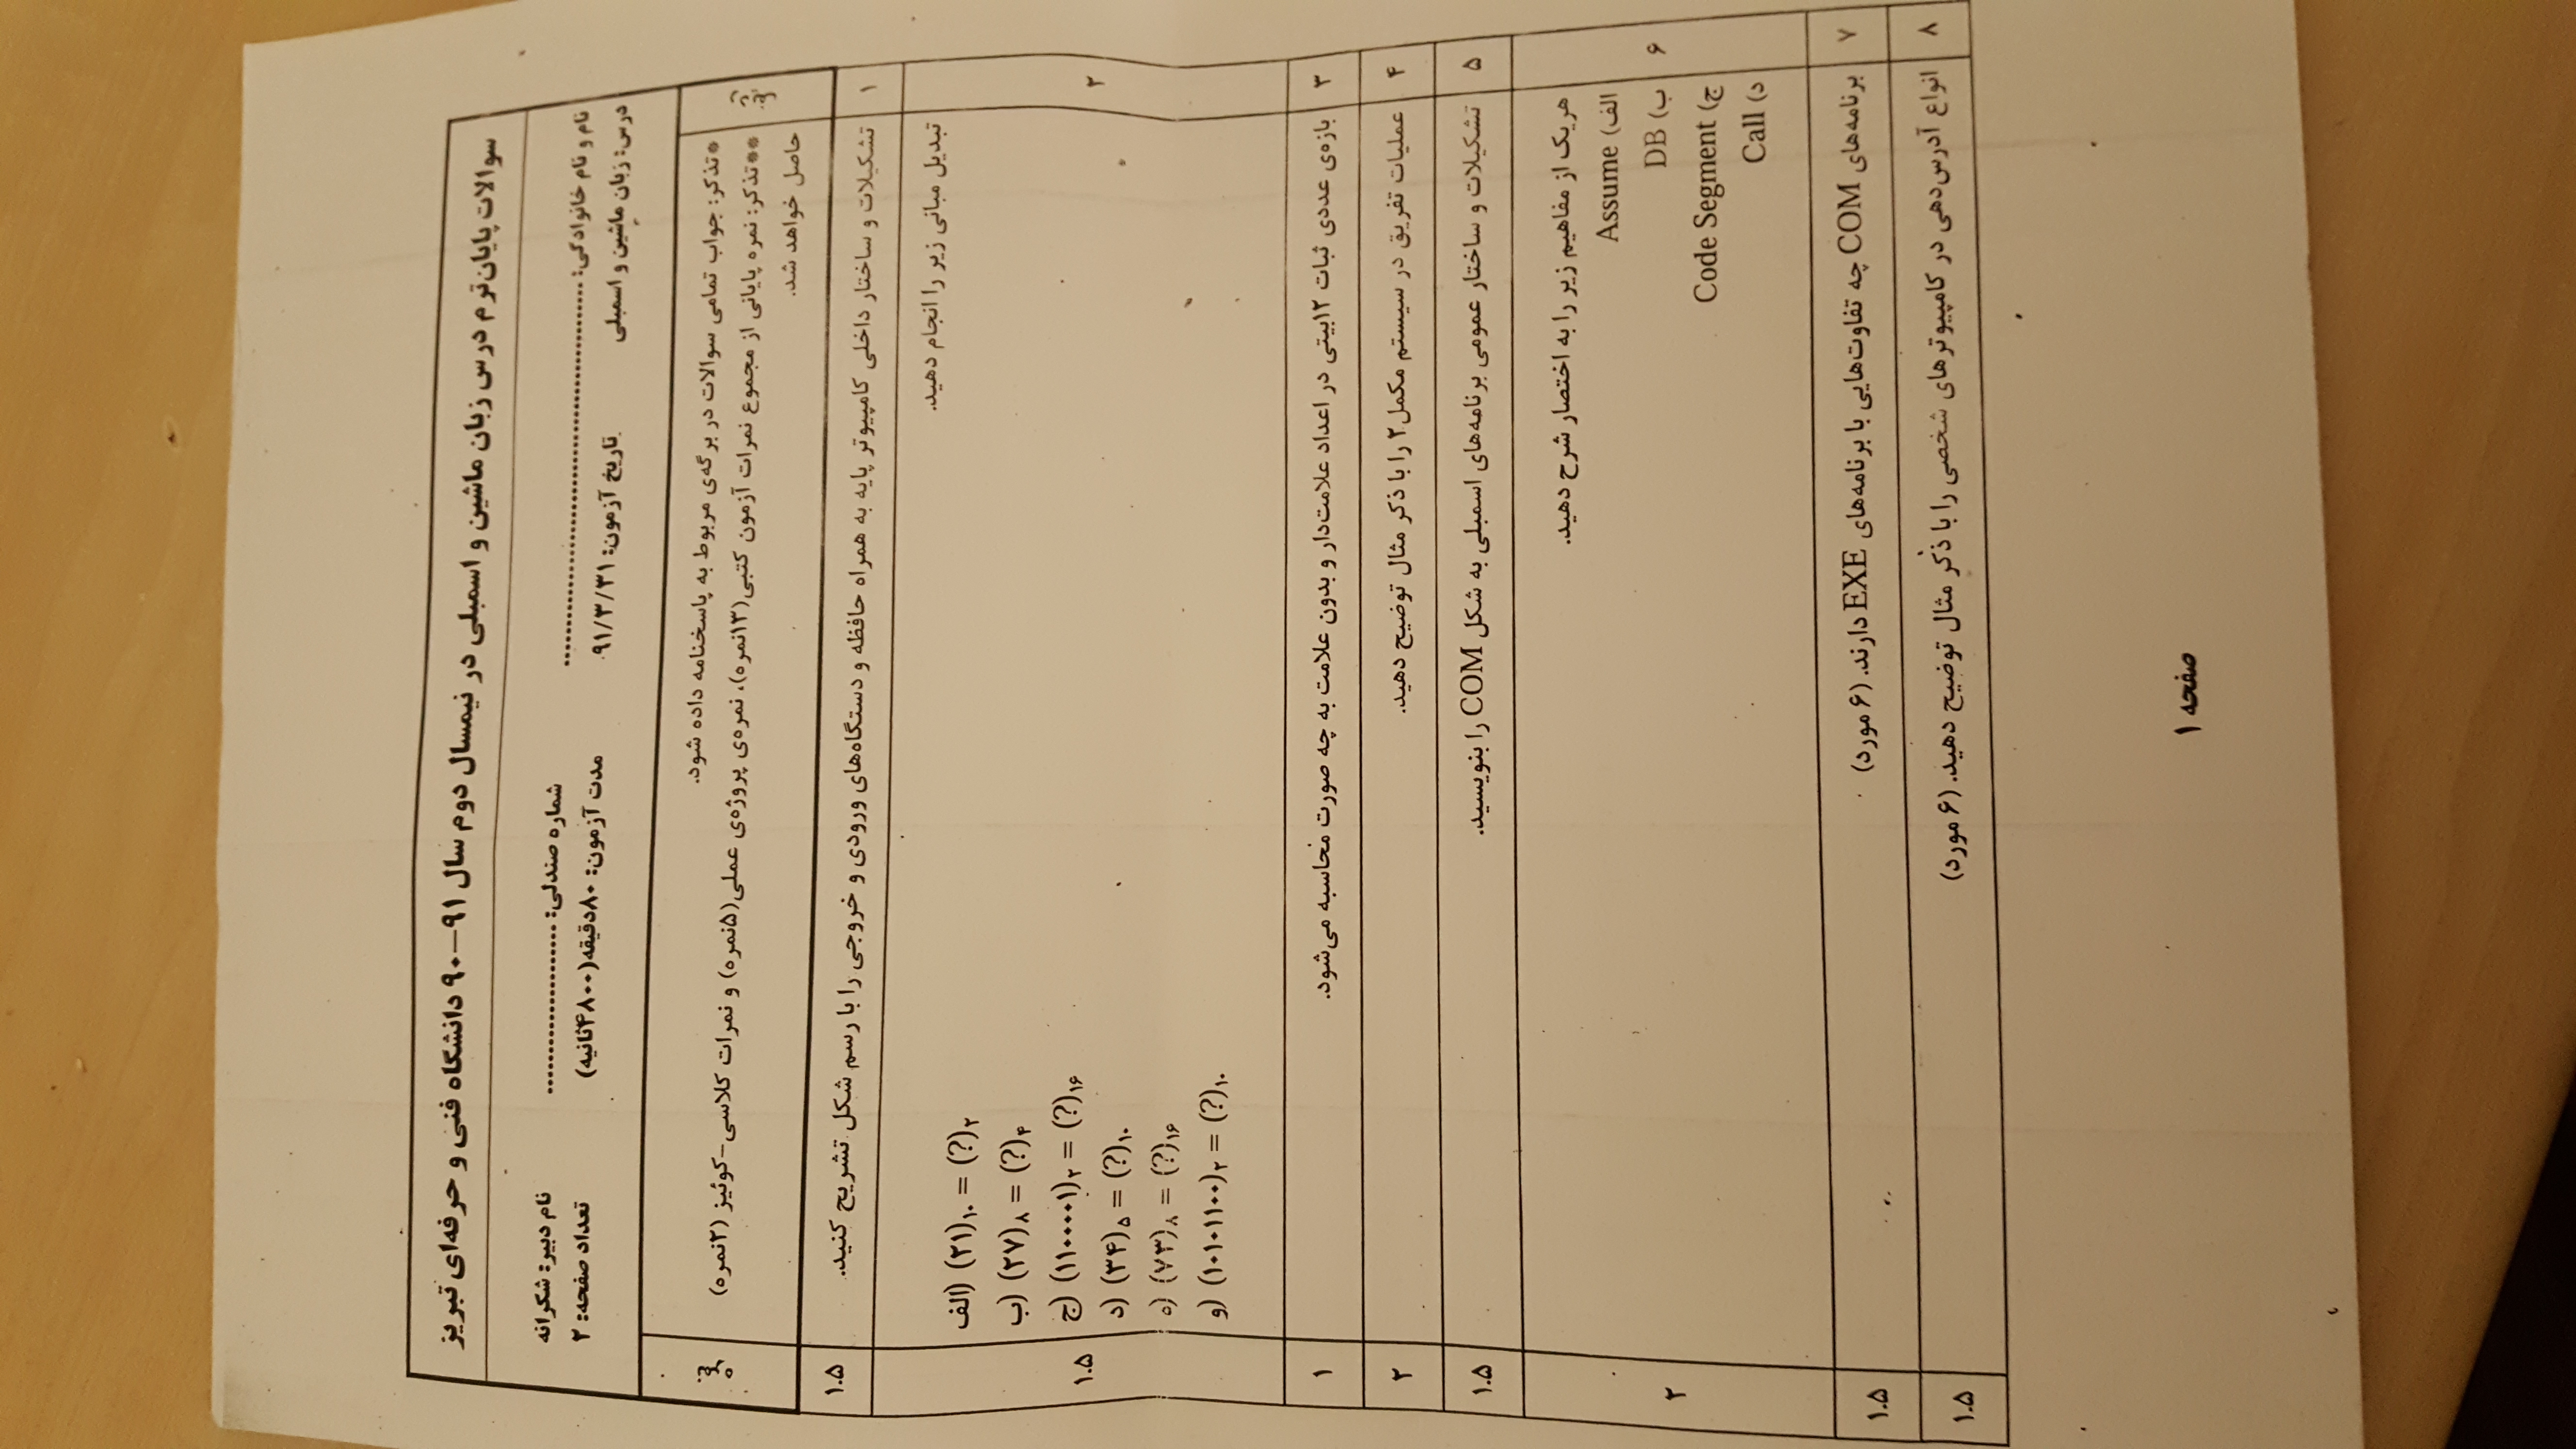 سوالات پایان‌ترم درس زبان ماشین و اسمبلی در نیمسال دوم سال ۹۱-۹۰ دانشگاه فنی و حرفه‌ای تبریز
نام و نام خانوادگی: ........................................ شماره صندلی: .................... نام دبیر: شکرانه
درس: زبان ماشین و اسمبلی تاریخ آزمون: ۹۱/۳/۳۱ مدت آزمون: ۸۰دقیقه(۴۸۰۰ثانیه) تعداد صفحه: ۲
*تذکر: جواب تمامی سوالات در برگه‌ی مربوط به پاسخنامه داده شود.
**تذکر: نمره پایانی از مجموع نمرات آزمون کتبی(۱۳نمره)، نمره‌ی پروژه‌ی عملی(۵نمره) و نمرات کلاسی-کوئیز (۲نمره)
حاصل خواهد شد.
نمره
۱ تشکیلات و ساختار داخلی کامپیوتر پایه به همراه حافظه و دستگاه‌های ورودی و خروجی را با رسم شکل تشریح کنید. ۱.۵
۲ تبدیل مبانی زیر را انجام دهید. ۱.۵
الف) (۲۱)۱۰ = (?)۲
ب) (۲۷)۸ = (?)۴
ج) (۱۱۰۰۰۰۱)۲ = (?)۱۶
د) (۳۴)۵ = (?)۱۰
ه) (۷۳)۸ = (?)۱۶
و) (۱۰۱۰۱۱۰۰)۲ = (?)۱۰
۳ بازه‌ی عددی ثبات ۱۲بیتی در اعداد علامت‌دار و بدون علامت به چه صورت محاسبه می‌شود. ۱
۴ عملیات تفریق در سیستم مکمل۲ را با ذکر مثال توضیح دهید. ۲
۵ تشکیلات و ساختار عمومی برنامه‌های اسمبلی به شکل COM را بنویسید. ۱.۵
۶ هریک از مفاهیم زیر را به اختصار شرح دهید. ۲
الف) Assume
ب) DB
ج) Code Segment
د) Call
۷ برنامه‌های COM چه تفاوت‌هایی با برنامه‌های EXE دارند. (۶ مورد) ۱.۵
۸ انواع آدرس‌دهی در کامپیوترهای شخصی را با ذکر مثال توضیح دهید. (۶ مورد) ۱.۵
صفحه ۱